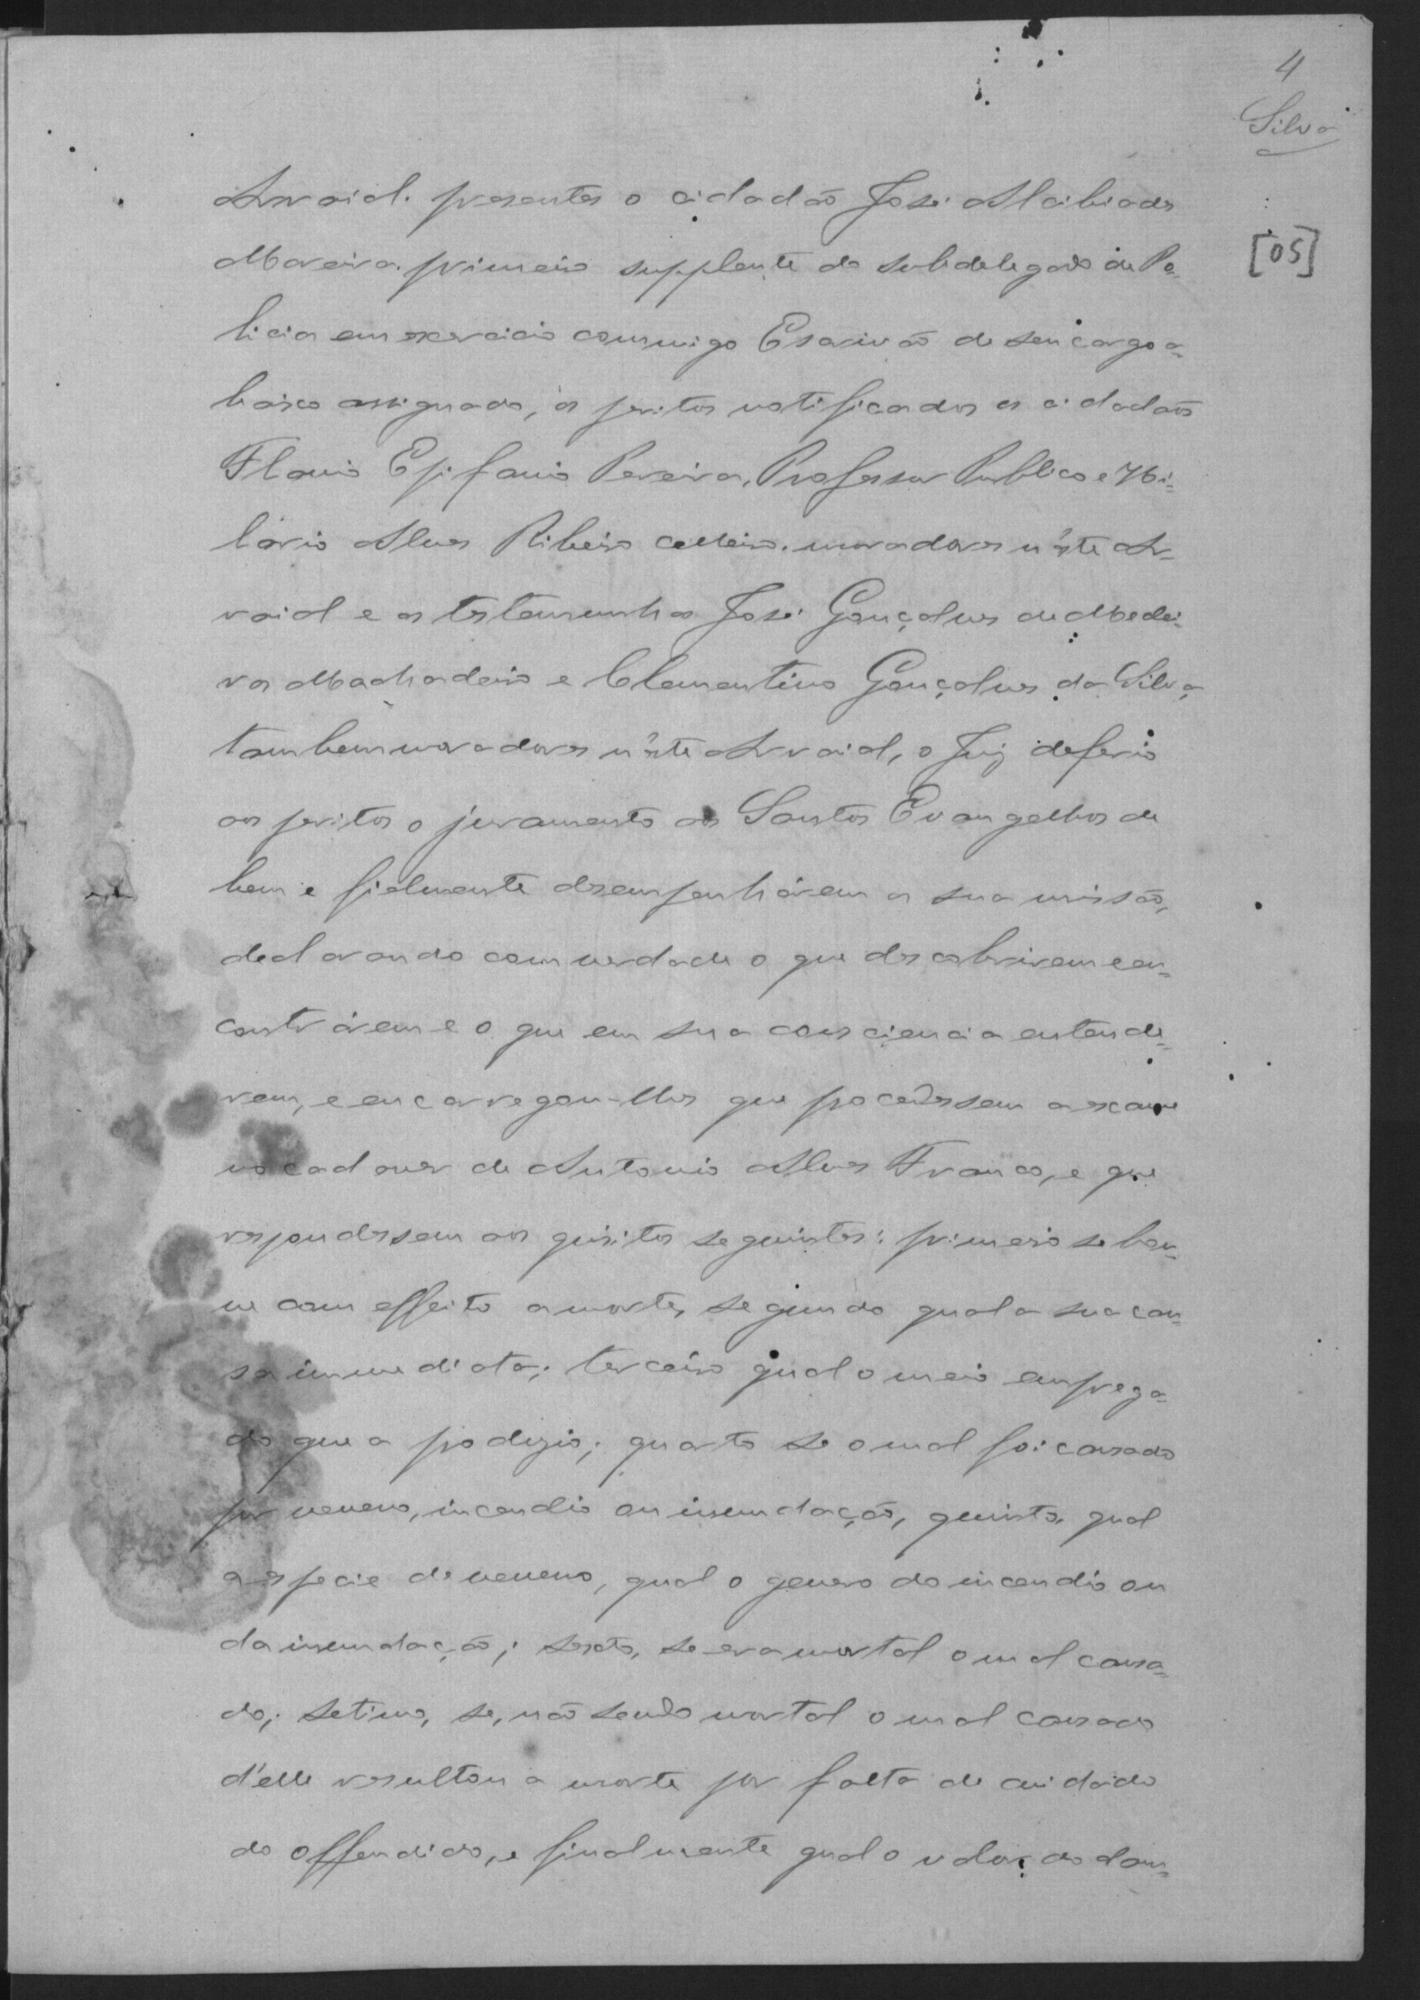 4
Silva
[05]
Arraial. presentes o cidadão José Alcibiades
Moreira primeiro supplente do subdelegado de Po=
licia em exercicio commigo Escrivão de seu cargo a=
baixo assignado, os peritos notificados os cidadãos
Flavio Epifanio Pereira, Professor Publico e Hi=
lário Alves Ribeiro moradores n'éste Ar=
raial e as testemunhas José Gonçalves de Medei=
ros Machadeiro e Clementino Gonçalves da Silva
tambem moradores n'éste Arraial, o Juiz deferio
aos peritos o juramento dos Santos Evangelhos de
bem e fielmente desempenhárem a sua missão,
declarando com verdade o que descobrirem e en=
contrárem e o que em sua consciencia entende=
rem, e encarregou-lhes que procedessem a exame
no cadaver de Antonio Alves Franco, e que
respondessem aos quisitos seguintes: primeiro se hou=
ve com effeito a morte, segundo qual a sua cau=
sa immediata; terceiro qual o meio emprega=
do que a produzio; quarto se o mal foi causado
por veneno, incendio ou inundação, quinto, qual
a especie de veneno, qual o genero do incendio ou
da inundação; sexto, se era mortal o mal causa=
do; setimo, se, não sendo mortal o mal causado
d'elle resultou a morte por falta de cuidado
do offendido, e finalmente qual o valor do dam=